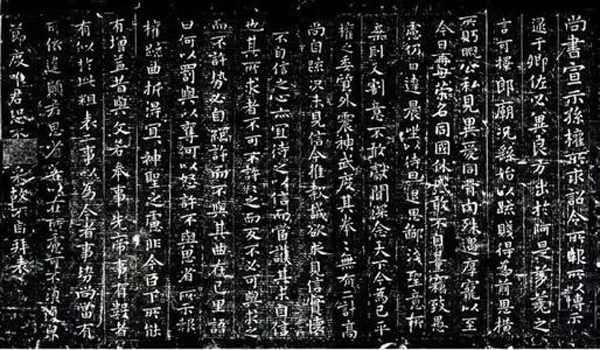 尚書宣示孫權所求詔令所報所以博示
逮于卿佐必冀良方出於阿是芻蕘之
言可擇郎廟況繇始以疏賤得為前恩橫
所眄睨公私見異愛同骨肉殊遇厚寵以至
今日再世榮名同國休慼敢不自量竊致愚
慮仍日達晨坐以待旦退思鄙淺聖意所
棄則又割意不敢獻聞深念天下今為已平
權之委質外震神武度其拳拳無有二計高
尚自疏況未見信今推款誠欲求見信實懷
不自信之心亦宜待之以信而當護其未自信
也其所求者不可不許許之而反不必可與求之
而不許勢必自絕許而不與其曲在己里語
曰何以罰與以奪何以怒許不與思省所示報
權疏曲折得宜神聖之慮非今臣下所能
有增益昔與文若奉事先帝事有數者
有似於此粗表二事以為今者事勢尚當有
所依違願君思省若以在所慮可不須復
節度唯君恐不采故不自拜表